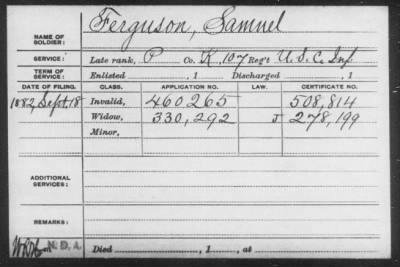 Ferguson, Samuel
NAME OF SOLDIER:
SERVICE: Late rank, P Co. K, 107 Reg't U.S.C. Inf
TERM OF SERVICE: Enlisted , 1 Discharged , 1
DATE OF FILING. CLASS. APPLICATION NO. LAW. CERTIFICATE NO.
1882, Sept. 18 Invalid, 460265 508,814
Widow, 330,292 J 278,199
Minor,
ADDITIONAL SERVICES:
REMARKS:
N.D.A. Died , 1 , at